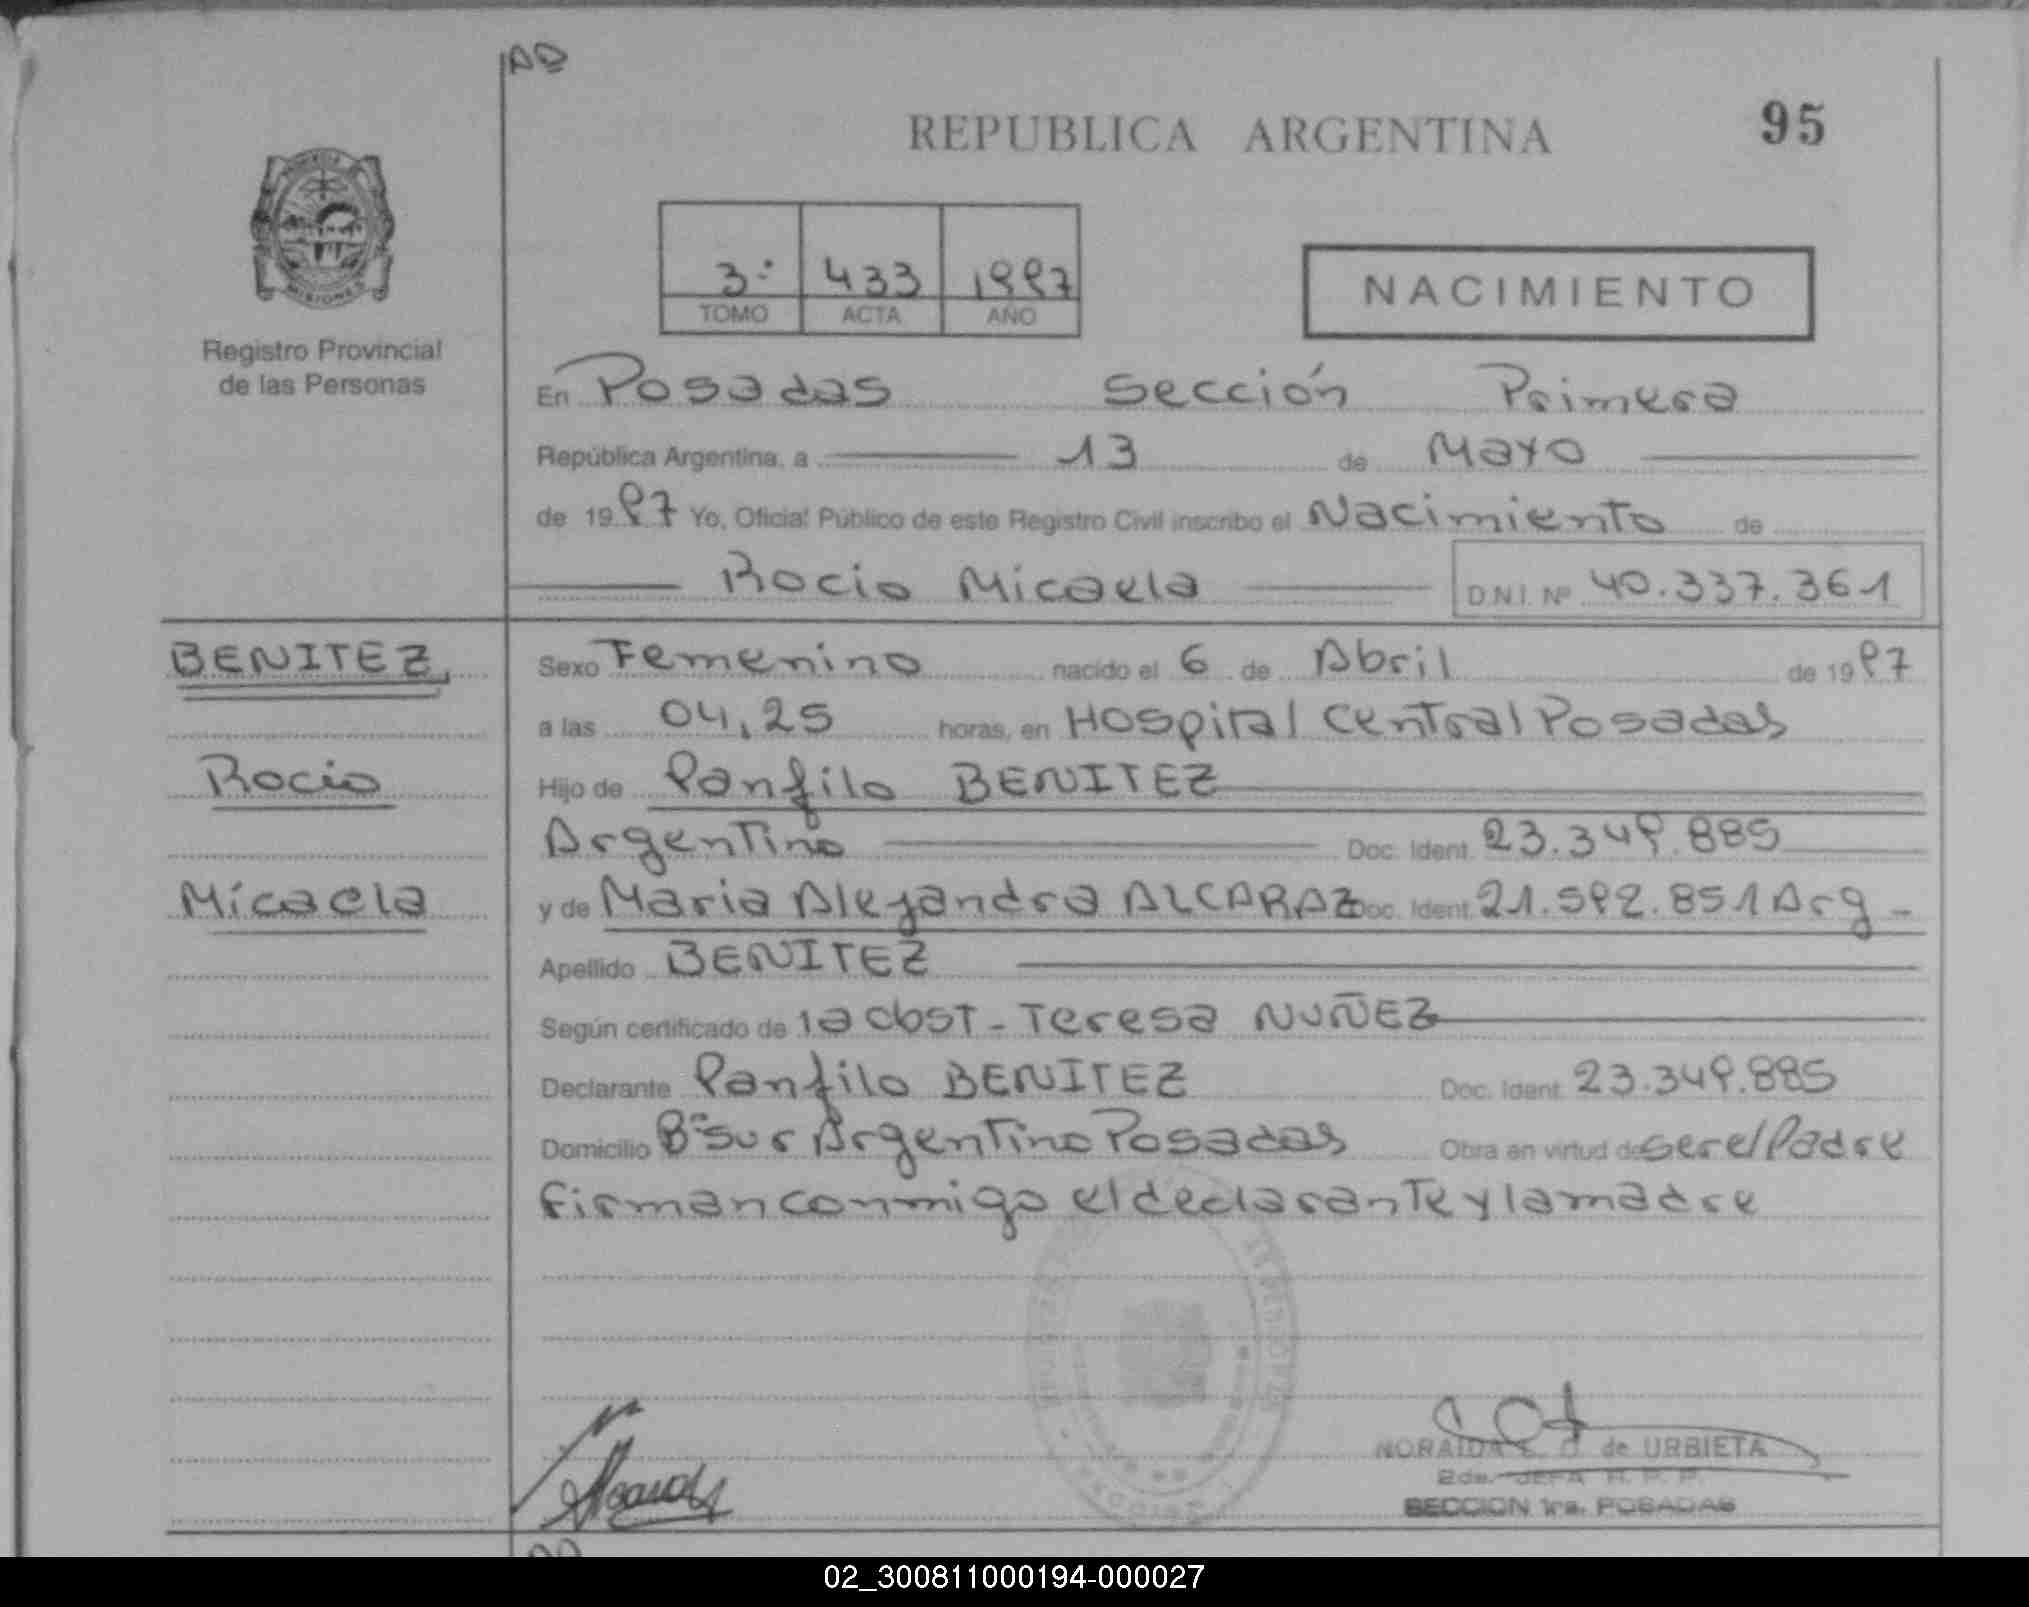 AD
REPUBLICA ARGENTINA
95
3º 433 1997
TOMO ACTA AÑO
NACIMIENTO
MISIONES
Registro Provincial
de las Personas
En Posadas Sección Primera
República Argentina, a 13 de Mayo
de 1997 Yo, Oficial Público de este Registro Civil inscribo el Nacimiento de
Rocio Micaela D.N.I. Nº 40.337.361
BENITEZ,
Rocio
Micaela
Sexo Femenino nacido el 6 de Abril de 1997
a las 04,25 horas, en Hospital Central Posadas
Hijo de Panfilo BENITEZ
Argentino Doc. Ident. 23.349.885
y de Maria Alejandra ALCARAZ Doc. Ident. 21.592.851 Arg -
Apellido BENITEZ
Según certificado de la obst - Teresa NUÑEZ
Declarante Panfilo BENITEZ Doc. Ident. 23.349.885
Domicilio Bº sur Argentino Posadas Obra en virtud de ser el Padre
firman conmigo el declarante y la madre
NORAIDA de URBIETA
2da. JEFA R. P. P.
SECCION 1ra. POSADAS
02_300811000194-000027